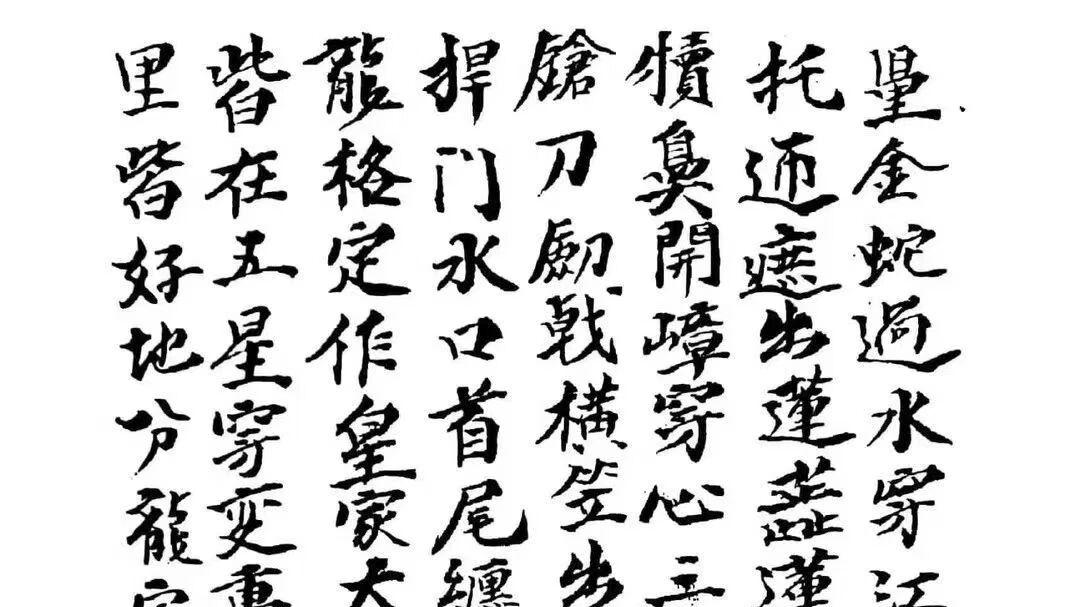 量金蛇過水穿江
托迊遮出蓮蕋蓮
犢鼻開嶂穿心三
鎗刀劒戟橫笠出
捍门水口首尾纏
龍格定作皇家大
皆在五星穿变重
里皆好地分龍穴